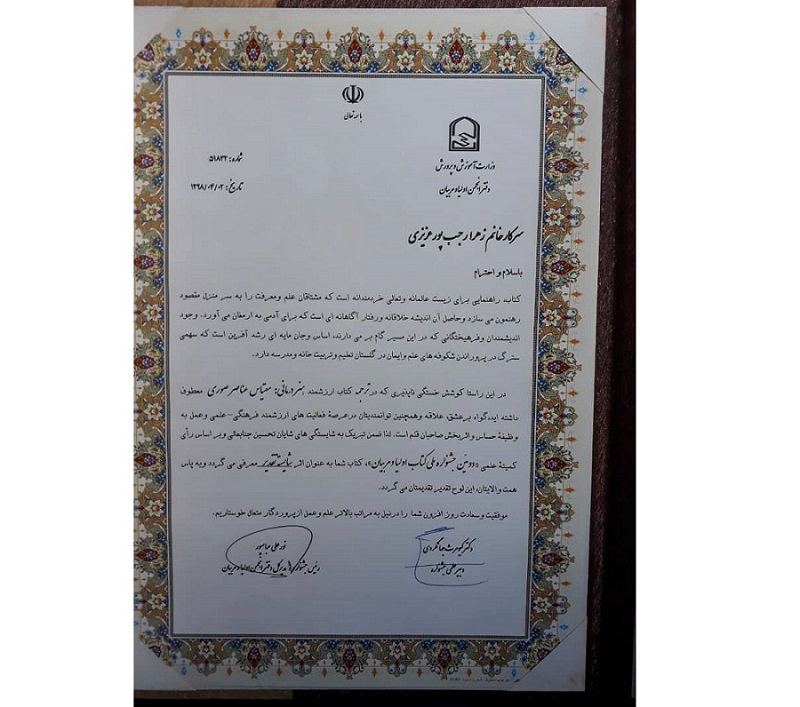 باسمه تعالی
وزارت آموزش و پرورش
دفتر انجمن اولیا و مربیان
شماره: ۵۱۸۳۲
تاریخ: ۱۳۹۸/۰۴/۰۲
سرکار خانم زهرا رجب پور عزیزی
باسلام و احترام
کتاب، راهنمایی برای زیست عالمانه وتعالی خردمندانه است که مشتاقان علم ومعرفت را به سر منزل مقصود
رهنمون می سازد وحاصل آن اندیشه خلاقانه ورفتار آگاهانه ای است که برای آدمی به ارمغان می آورد. وجود
اندیشمندان وفرهیختگانی که در این مسیر گام بر می دارند، اساس وجان مایه ای رشد آفرین است که سهمی
سترگ در پروراندن شکوفه های علم وایمان در گلستان تعلیم وتربیت خانه ومدرسه دارد.
در این راستا کوشش خستگی ناپذیری که در ترجمه کتاب ارزشمند :هنردرمانی: مقیاس عناصر صوری معطوف
داشته اید،گواه برعشق، علاقه وهمچنین توانمندیتان درعرصة فعالیت های ارزشمند فرهنگی-علمی وعمل به
وظیفة حساس واثربخش صاحبان قلم است. لذا ضمن تبریک به شایستگی های شایان تحسین جنابعالی وبر اساس رأی
کمیتة علمی «دومین جشنواره ملی کتاب اولیا و مربیان»، کتاب شما به عنوان اثر شایسته تقدیر معرفی می گردد وبه پاس
همت والایتان، این لوح تقدیر تقدیمتان می گردد.
موفقیت وسعادت روز افزون شما را درنیل به مراتب بالاتر علم وعمل از پروردگار متعال خواستاریم.
دکتر کیومرث جهانگردی
دبیر علمی جشنواره
نورعلی عباسپور
رئیس جشنواره و مدیرکل دفتر انجمن اولیا و مربیان